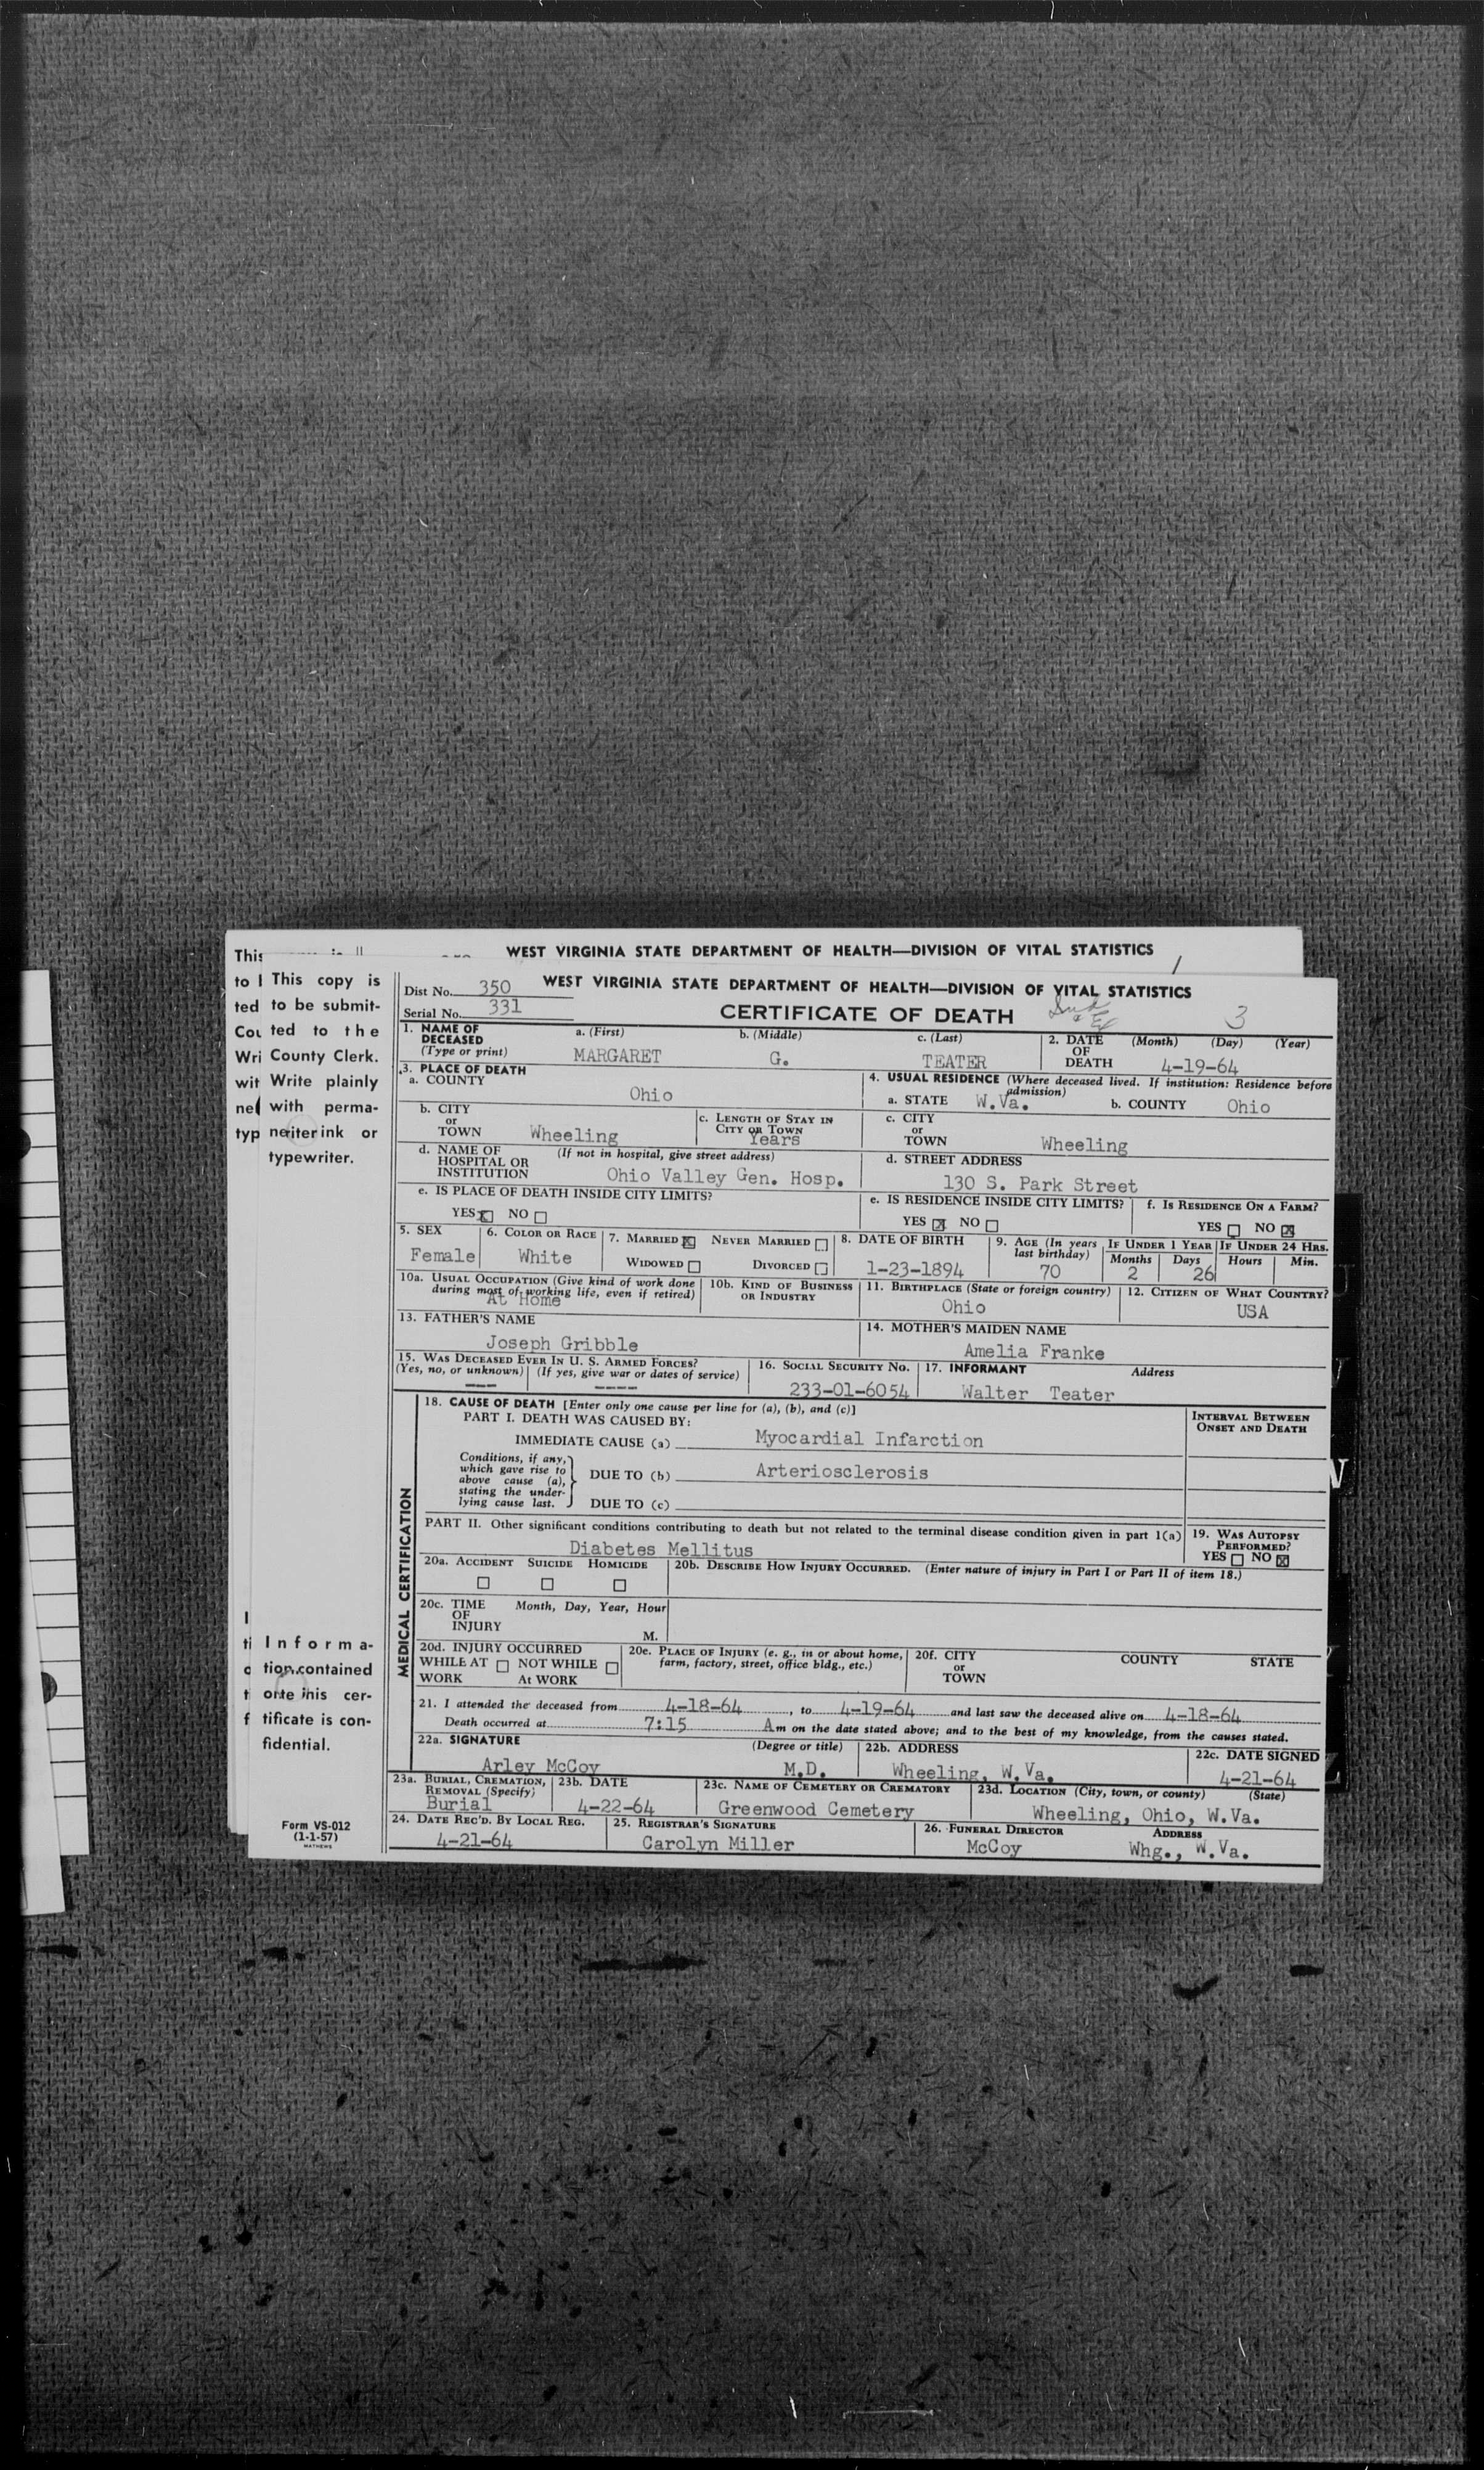 WEST VIRGINIA STATE DEPARTMENT OF HEALTH—DIVISION OF VITAL STATISTICS
This
to
ted
Cou
Wri
wit
typ
This copy is
to be submit-
ted to the
County Clerk.
Write plainly
with perma-
ink or
typewriter.
Informa-
tion contained
this cer-
tificate is con-
fidential.
Form VS-012
(1-1-57)
MATHEWS
Dist No. 350
WEST VIRGINIA STATE DEPARTMENT OF HEALTH—DIVISION OF VITAL STATISTICS
Serial No. 331
CERTIFICATE OF DEATH
3
1. NAME OF DECEASED (Type or print)
a. (First) MARGARET
b. (Middle) G.
c. (Last) TEATER
2. DATE OF DEATH (Month) (Day) (Year)
4-19-64
3. PLACE OF DEATH
a. COUNTY Ohio
4. USUAL RESIDENCE (Where deceased lived. If institution: Residence before admission)
a. STATE W.Va. b. COUNTY Ohio
b. CITY or TOWN Wheeling
c. LENGTH OF STAY IN CITY OR TOWN Years
c. CITY or TOWN Wheeling
d. NAME OF HOSPITAL OR INSTITUTION (If not in hospital, give street address)
Ohio Valley Gen. Hosp.
d. STREET ADDRESS
130 S. Park Street
e. IS PLACE OF DEATH INSIDE CITY LIMITS?
YES ☒ NO ☐
e. IS RESIDENCE INSIDE CITY LIMITS?
YES ☒ NO ☐
f. IS RESIDENCE ON A FARM?
YES ☐ NO ☒
5. SEX Female
6. COLOR OR RACE White
7. MARRIED ☒ NEVER MARRIED ☐
WIDOWED ☐ DIVORCED ☐
8. DATE OF BIRTH 1-23-1894
9. AGE (In years last birthday) 70
IF UNDER 1 YEAR Months 2 Days 26
IF UNDER 24 HRS. Hours Min.
10a. USUAL OCCUPATION (Give kind of work done during most of working life, even if retired)
At Home
10b. KIND OF BUSINESS OR INDUSTRY
11. BIRTHPLACE (State or foreign country)
Ohio
12. CITIZEN OF WHAT COUNTRY?
USA
13. FATHER'S NAME
Joseph Gribble
14. MOTHER'S MAIDEN NAME
Amelia Franke
15. WAS DECEASED EVER IN U. S. ARMED FORCES?
(Yes, no, or unknown) (If yes, give war or dates of service)
--- ---
16. SOCIAL SECURITY NO.
233-01-6054
17. INFORMANT Address
Walter Teater
MEDICAL CERTIFICATION
18. CAUSE OF DEATH [Enter only one cause per line for (a), (b), and (c)]
PART I. DEATH WAS CAUSED BY:
INTERVAL BETWEEN ONSET AND DEATH
IMMEDIATE CAUSE (a) Myocardial Infarction
Conditions, if any, which gave rise to above cause (a), stating the under-lying cause last.
DUE TO (b) Arteriosclerosis
DUE TO (c)
PART II. Other significant conditions contributing to death but not related to the terminal disease condition given in part 1(a)
Diabetes Mellitus
19. WAS AUTOPSY PERFORMED?
YES ☐ NO ☒
20a. ACCIDENT SUICIDE HOMICIDE
☐ ☐ ☐
20b. DESCRIBE HOW INJURY OCCURRED. (Enter nature of injury in Part I or Part II of item 18.)
20c. TIME OF INJURY Month, Day, Year, Hour
M.
20d. INJURY OCCURRED
WHILE AT WORK ☐ NOT WHILE At WORK ☐
20e. PLACE OF INJURY (e. g., in or about home, farm, factory, street, office bldg., etc.)
20f. CITY or TOWN COUNTY STATE
21. I attended the deceased from 4-18-64, to 4-19-64 and last saw the deceased alive on 4-18-64
Death occurred at 7:15 Am on the date stated above; and to the best of my knowledge, from the causes stated.
22a. SIGNATURE (Degree or title)
Arley McCoy M.D.
22b. ADDRESS
Wheeling, W.Va.
22c. DATE SIGNED
4-21-64
23a. BURIAL, CREMATION, REMOVAL (Specify)
Burial
23b. DATE
4-22-64
23c. NAME OF CEMETERY OR CREMATORY
Greenwood Cemetery
23d. LOCATION (City, town, or county) (State)
Wheeling, Ohio, W.Va.
24. DATE REC'D. BY LOCAL REG.
4-21-64
25. REGISTRAR'S SIGNATURE
Carolyn Miller
26. FUNERAL DIRECTOR ADDRESS
McCoy Whg., W.Va.